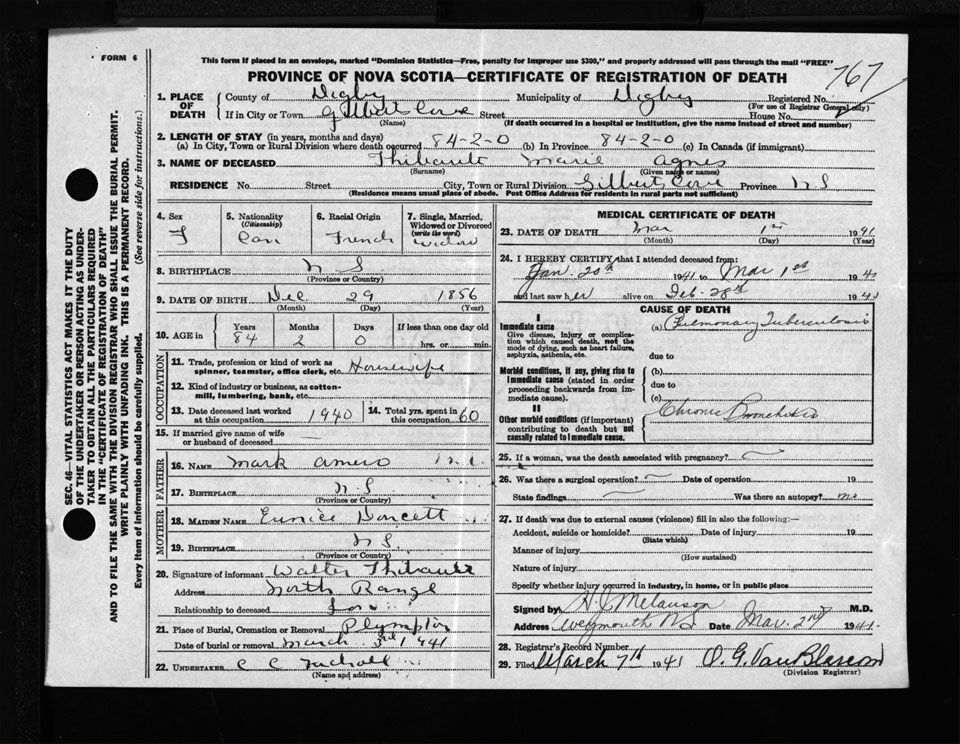 FORM 6
This form if placed in an envelope, marked "Dominion Statistics—Free, penalty for improper use $300," and properly addressed will pass through the mail "FREE"
PROVINCE OF NOVA SCOTIA—CERTIFICATE OF REGISTRATION OF DEATH
767
1. PLACE OF DEATH
County of Digby Municipality of Digby Registered No.
(For use of Registrar General only)
If in City or Town Gilberts Cove Street House No.
(Name) (If death occurred in a hospital or institution, give the name instead of street and number)
2. LENGTH OF STAY (in years, months and days)
(a) In City, Town or Rural Division where death occurred 84-2-0 (b) In Province 84-2-0 (c) In Canada (if immigrant)
3. NAME OF DECEASED Thibault Marie Agnes
(Surname) (Given name or names)
RESIDENCE No. Street City, Town or Rural Division Gilbert Cove Province N S
(Residence means usual place of abode. Post Office Address for residents in rural parts not sufficient)
4. Sex F
5. Nationality (Citizenship) Can
6. Racial Origin French
7. Single, Married, Widowed or Divorced (write the word) Widow
8. BIRTHPLACE N S
(Province or Country)
9. DATE OF BIRTH Dec 29 1856
(Month) (Day) (Year)
10. AGE in Years Months Days If less than one day old
84 2 0 hrs. or min.
OCCUPATION
11. Trade, profession or kind of work as spinner, teamster, office clerk, etc. Housewife
12. Kind of industry or business, as cotton-mill, lumbering, bank, etc.
13. Date deceased last worked at this occupation 1940
14. Total yrs. spent in this occupation 60
15. If married give name of wife or husband of deceased —
FATHER
16. NAME Mark Amero
17. BIRTHPLACE N S
(Province or Country)
MOTHER
18. MAIDEN NAME Eunice Doucett
19. BIRTHPLACE N S
(Province or Country)
20. Signature of informant Walter Thibault
Address North Range
Relationship to deceased Son
21. Place of Burial, Cremation or Removal Plympton
Date of burial or removal March 3rd 1941
22. UNDERTAKER C C
(Name and address)
MEDICAL CERTIFICATE OF DEATH
23. DATE OF DEATH Mar 1st 1941
(Month) (Day) (Year)
24. I HEREBY CERTIFY that I attended deceased from:
Jan. 20th 1941 to Mar 1st 1940
and last saw her alive on Feb. 28th 1940
CAUSE OF DEATH
I
Immediate cause
Give disease, injury or complication which caused death, not the mode of dying, such as heart failure, asphyxia, asthenia, etc.
(a) Pulmonary Tuberculosis
due to
Morbid conditions, if any, giving rise to immediate cause (stated in order proceeding backwards from immediate cause).
(b)
due to
(c)
II
Other morbid conditions (if important) contributing to death but not causally related to immediate cause.
Chronic Bronchitis
25. If a woman, was the death associated with pregnancy? —
26. Was there a surgical operation? — Date of operation 19
State findings — Was there an autopsy? no
27. If death was due to external causes (violence) fill in also the following:—
Accident, suicide or homicide? Date of injury 19
(State which)
Manner of injury
(How sustained)
Nature of injury
Specify whether injury occurred in industry, in home, or in public place
Signed by H. J. Melanson M.D.
Address Weymouth N.S. Date Mar. 2nd 1941.
28. Registrar's Record Number
29. Filed March 7th 1941 O. G. VanBlarcom
(Division Registrar)
SEC. 46—VITAL STATISTICS ACT MAKES IT THE DUTY
OF THE UNDERTAKER OR PERSON ACTING AS UNDER-
TAKER TO OBTAIN ALL THE PARTICULARS REQUIRED
IN THE "CERTIFICATE OF REGISTRATION OF DEATH"
AND TO FILE THE SAME WITH THE DIVISION REGISTRAR WHO SHALL ISSUE THE BURIAL PERMIT.
WRITE PLAINLY WITH UNFADING INK. THIS IS A PERMANENT RECORD.
Every item of information should be carefully supplied. (See reverse side for instructions.)